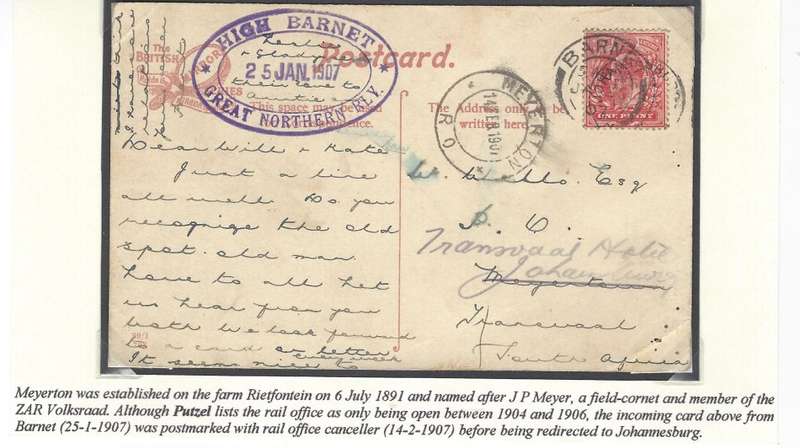 HIGH BARNET
25 JAN. 1907
GREAT NORTHERN RLY.
Postcard.
The
BRITISH
This space may be used
The Address only to be
written here.
BARNET
ONE PENNY
MEYERTON
14 FEB 1907
R O
love to
Auntie
Dear Will & Kate
Just a line
all well. Do you
recognise the old
spot old man.
love to all let
us hear from you
both we look forward
to a card or letter
every week
It seems nice to
Esq
P. O.
Transvaal Hotel
Johannesburg
Meyerton
Transvaal
South Africa
Meyerton was established on the farm Rietfontein on 6 July 1891 and named after J P Meyer, a field-cornet and member of the
ZAR Volksraad. Although Putzel lists the rail office as only being open between 1904 and 1906, the incoming card above from
Barnet (25-1-1907) was postmarked with rail office canceller (14-2-1907) before being redirected to Johannesburg.